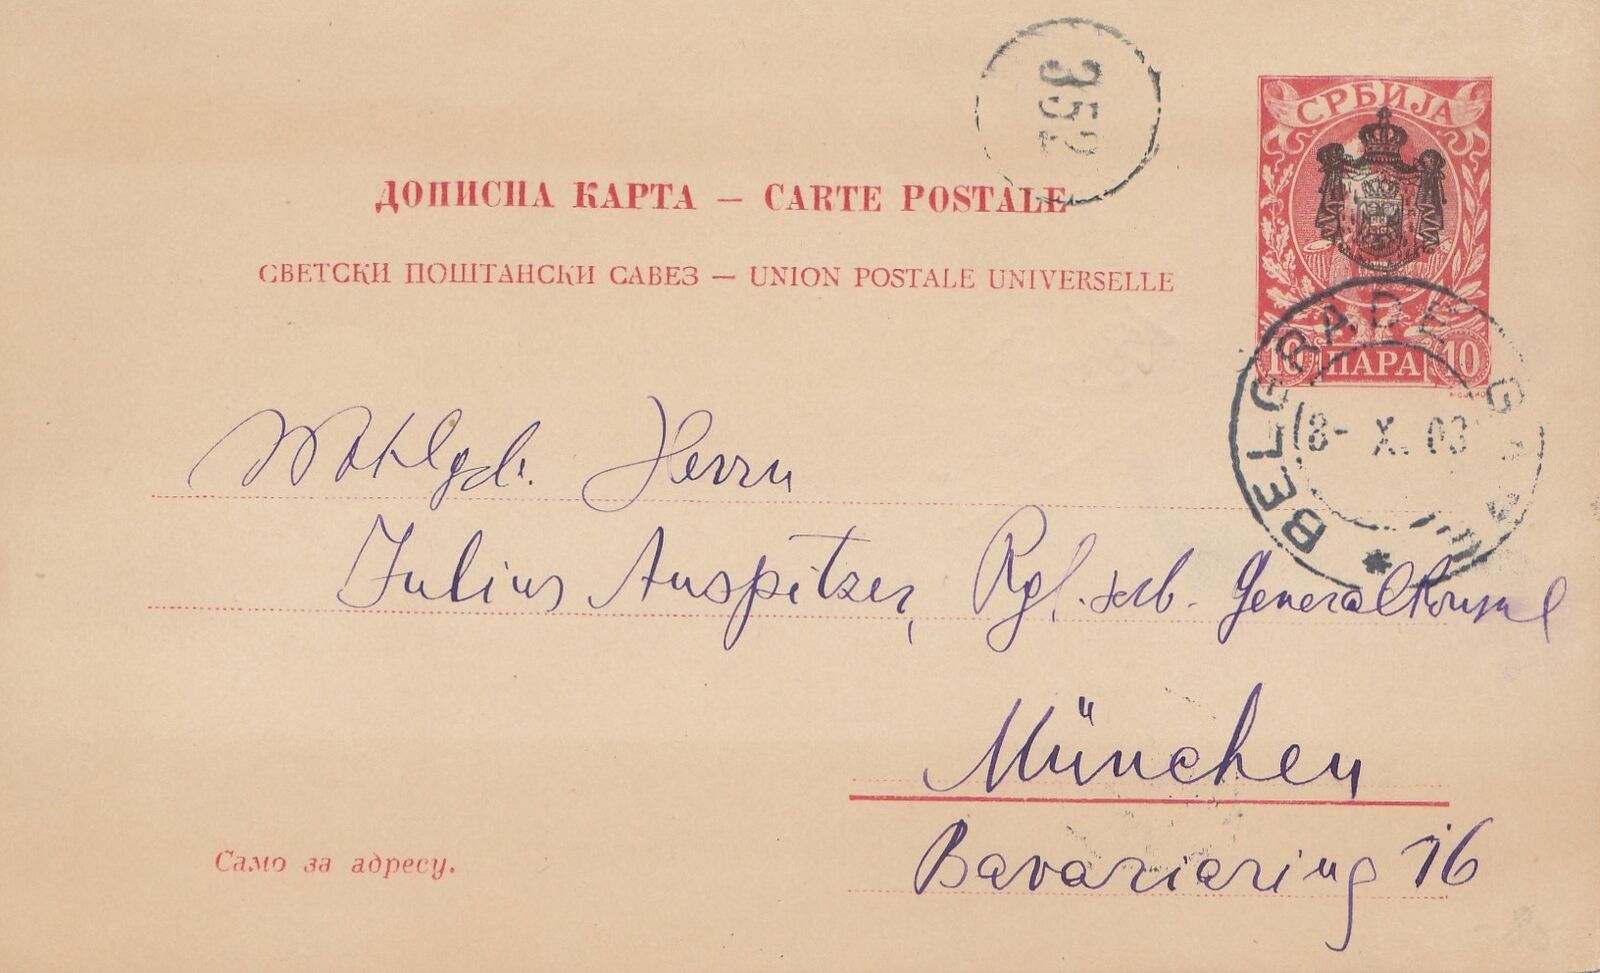 352
СРБИЈА
ДОПИСНА КАРТА — CARTE POSTALE
СВЕТСКИ ПОШТАНСКИ САВЕЗ — UNION POSTALE UNIVERSELLE
10 ПАРА 10
BELGRADE
8- X. 03
Wohlgeb. Herrn
Julius Auspitzer, Kgl. serb. Generalkonsul
München
Bavariaring 16
Само за адресу.